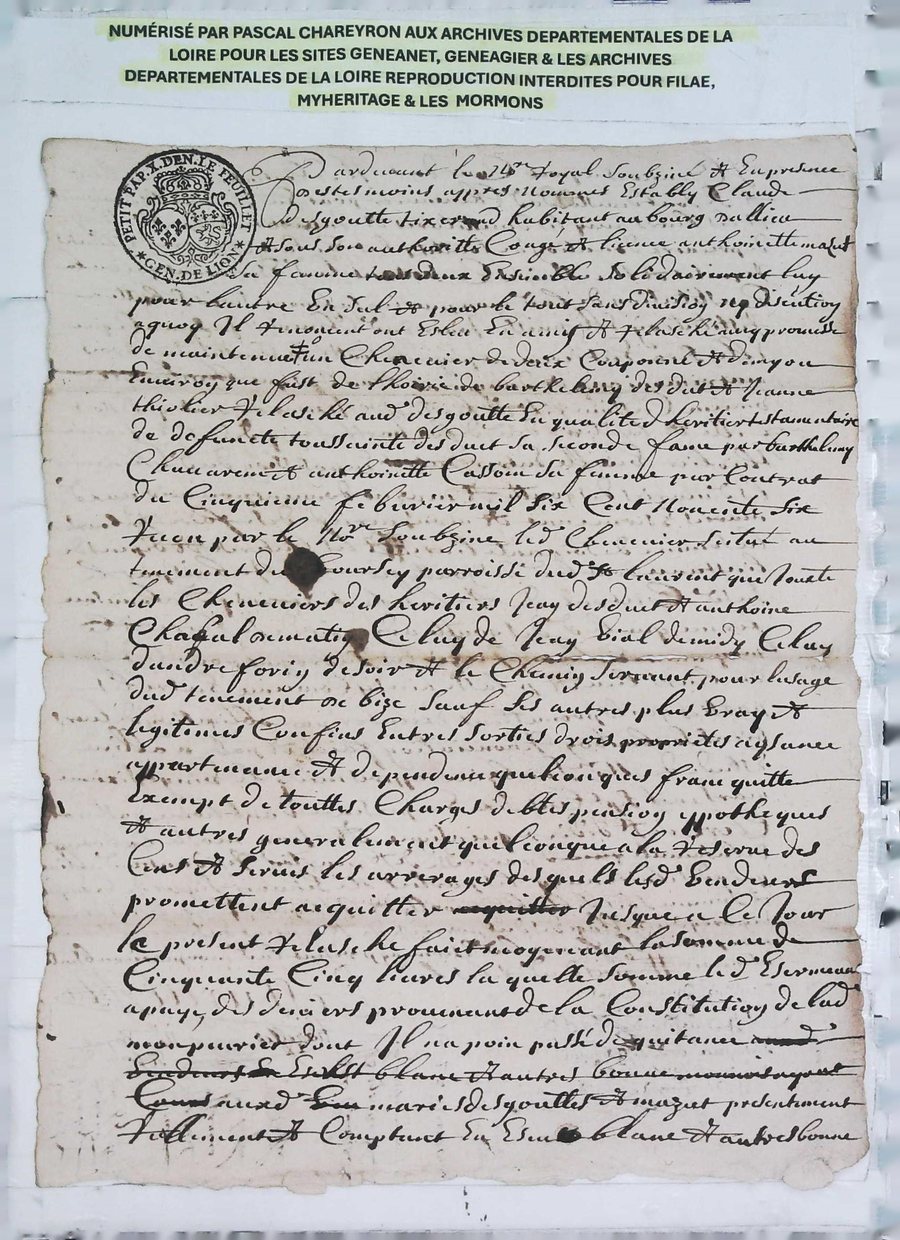 NUMÉRISÉ PAR PASCAL CHAREYRON AUX ARCHIVES DEPARTEMENTALES DE LA
LOIRE POUR LES SITES GENEANET, GENEAGIER & LES ARCHIVES
DEPARTEMENTALES DE LA LOIRE REPRODUCTION INTERDITES POUR FILAE,
MYHERITAGE & LES MORMONS
PETIT PAP. X. DEN. LE FEUILLET
GEN. DE LION
Pardevant le no.re Royal Soubziné & En presence
des tesmoins appres nommes Estably Claude
desgoutte tixerand habitant au bourg dallieu
& sous son authoritté Congé & licence anthoinette mazet
sa femme tous deux Ensemble solidairement luy
pour lautre En sul & pour le tout sans division ny discution
aquoy Il Renoncent ont En amis & Relasché avuq promesse
de maintenue un Chenevier de deux Couponné & demy ou
Environ que fust de lhoirie de barthelemy desduit & Jeanne
thiolier Relasché aud. desgoutte En qualité dheritier testamentaire
de deffuncte toussainte desduct sa seconde fame par barthelemy
Chavarem & anthoinette Cassoin sa femme par Contrat
du Cinquieme febvrier mil six Cent nonente six
Receu par le no.re Soubzine led. Chenevier situé au
tenement du Coursey parroisse dud. St laurent que Jouxte
les Cheneviers des heritiers Jean desduct & anthoine
Chapal de matin Celuy de Jean Vial de midy Celuy
dandre foriy de soir & le Chemin servant pour lusage
dud. tenement de bize Sauf ses autres plus Vray &
legitimes Confins Entres sorties drois proprietés aysance
appartenance & dependence quelconques franc quitte
Exempt de touttes Charges debtes pension ypotheques
& autres generalement quelconque a la Reserve des
Cens & servis les arrerages desquels lesd. Vendeurs
promettent acquitter acquitter Jusque a Ce Jour
le present Relasche fait moyenant la somme de
Cinquante Cinq livres la quelle somme led.
a paye, des deniers provenant de la Constitution de lad.
dont Il na poin passé de quitance aud.
Vendeurs En blanc & autres bonne monnoie ayant
Cours auxd. mariés desgouttes & mazet presentement
Rellement & Comptant En blanc & autres bonne